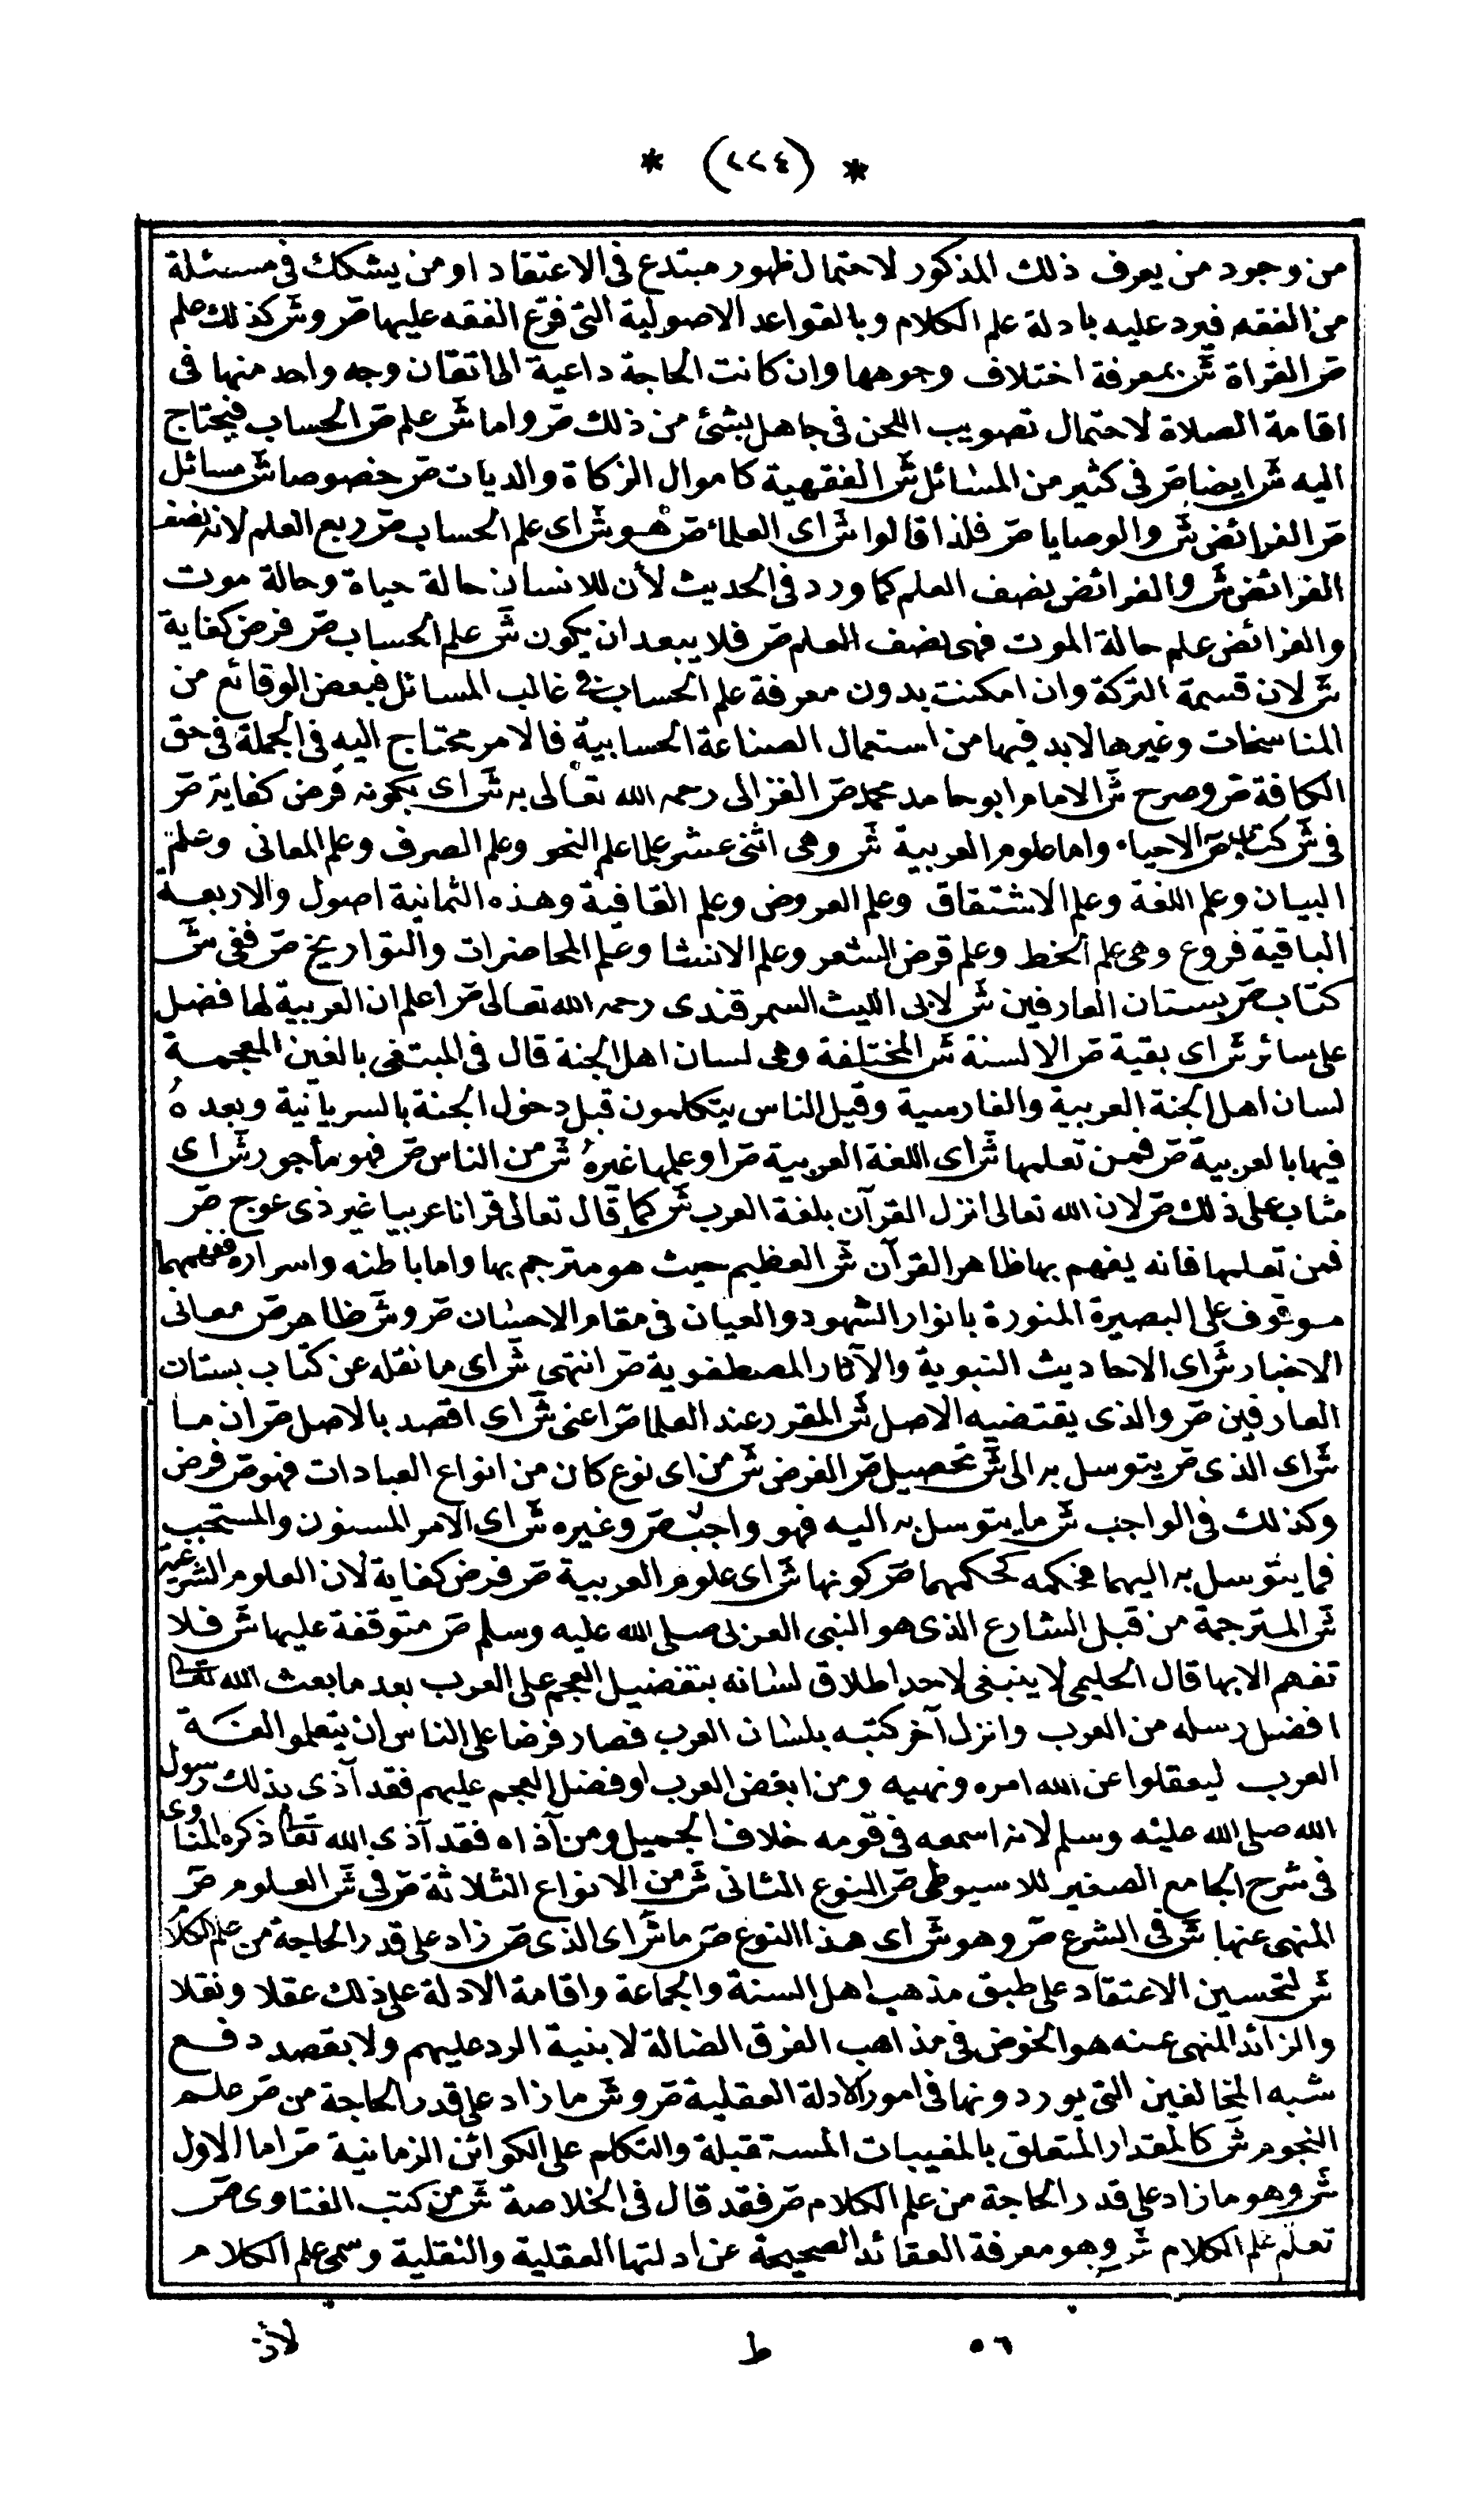 * (٢٢٤) *
من وجود من يعرف ذلك المذكور لاحتمال ظهور مبتدع في الاعتقاد او من يشكك في مسئلة
من الفقه فيرد عليه بادلة علم الكلام وبالقواعد الاصولية التى فرّع الفقه عليها صر وشر كذلك علم
صر القراة شر بمعرفة اختلاف وجوهها وان كانت الحاجة داعية الى اتقان وجه واحد منها فى
اقامة الصلاة لاحتمال تصويب اللحن فى جاهل بشئ من ذلك صر واما شر علم صر الحساب فيحتاج
اليه شر ايضا صر فى كثير من المسائل شر الفقهية كاموال الزكاة والديات صر خصوصا شر مسائل
صر الفرائض شر والوصايا صر فلذا قالوا شر اى العلماء صر هو شر اى علم الحساب صر ربع العلم لانه نصف
الفرائض شر والفرائض نصف العلم كما ورد فى الحديث لأن للانسان حالة حياة وحالة موت
والفرائض علم حالة الموت فهى نصف العلم صر فلا يبعد ان يكون شر علم الحساب صر فرض كفاية
شر لان قسمة التركة وان امكنت بدون معرفة علم الحساب فى غالب المسائل فبعض الوقائع من
المناسخات وغيرها لابد فيها من استعمال الصناعة الحسابية فالامر محتاج اليه فى الجملة فى حق
الكافة صر وصرح شر الامام ابو حامد محمد صر الغزالى رحمه الله تعالى به شر اى بكونه فرض كفاية صر
فى شر كتاب صر الاحياء واما علوم العربية شر وهى اثنى عشر علما علم النحو وعلم الصرف وعلم المعانى وعلم
البيان وعلم اللغة وعلم الاشتقاق وعلم العروض وعلم القافية وهذه الثمانية اصول والاربعة
الباقية فروع وهى علم الخط وعلم قرض الشعر وعلم الانشا وعلم المحاضرات والتواريخ صر ففى شر
كتاب صر بستان العارفين شر لابى الليث السمرقندى رحمه الله تعالى صر اعلم ان العربية لها فضل
على سائر شر اى بقية صر الالسنة شر المختلفة وهى لسان اهل الجنة قال فى المبتغى بالغين المعجمة
لسان اهل الجنة العربية والفارسية وقيل الناس يتكلمون قبل دخول الجنة بالسريانية وبعده
فيها بالعربية صر فمن تعلمها شر اى اللغة العربية صر او علمها غيره شر من الناس صر فهو مأجور شر اى
مثاب على ذلك صر لان الله تعالى انزل القرآن بلغة العرب شر كما قال تعالى قرانا عربيا غير ذى عوج صر
فمن تعلمها فانه يفهم بها ظاهر القرآن شر العظيم حيث هو مترجم بها واما باطنه واسراره ففهمهما
موقوف على البصيرة المنورة بانوار الشهود والعيان فى مقام الاحسان صر وشر ظاهر صر معانى
الاخبار شر اى الاحاديث النبوية والآثار المصطفوية صر انتهى شر اى ما نقله عن كتاب بستان
العارفين صر والذى يقتضيه الاصل شر المقرر عند العلما صر اعنى شر اى اقصد بالاصل صر ان ما
شر اى الذى صر يتوسل به الى شر تحصيل صر الفرض شر من اى نوع كان من انواع العبادات فهو صر فرض
وكذلك فى الواجب شر ما يتوسل به اليه فهو واجب صر وغيره شر اى الامر المسنون والمستحب
فما يتوسل به اليهما فحكمه كحكمهما صر كونها شر اى علوم العربية صر فرض كفاية لان العلوم الشرعية
شر المترجمة من قبل الشارع الذى هو النبى العربى صلى الله عليه وسلم صر متوقفة عليها شر فلا
تفهم الا بها قال الحليمى لا ينبغى لاحد اطلاق لسانه بتفضيل العجم على العرب بعد ما بعث الله تعالى
افضل رسله من العرب وانزل آخر كتبه بلسان العرب فصار فرضا على الناس ان يتعلموا لغة
العرب ليعقلوا عن الله امره ونهيه ومن ابغض العرب او فضل العجم عليهم فقد آذى بذلك رسول
الله صلى الله عليه وسلم لانه اسمعه فى قومه خلاف الجميل ومن آذاه فقد آذى الله تعالى ذكره المناوى
فى شرح الجامع الصغير للاسيوطى صر النوع الثانى شر من الانواع الثلاثة صر فى شر العلوم صر
المنهى عنها شر فى الشرع صر وهو شر اى هذا النوع صر ما شر اى الذى صر زاد على قدر الحاجة من علم الكلام
شر لتحسين الاعتقاد على طبق مذهب اهل السنة والجماعة واقامة الادلة على ذلك عقلا ونقلا
والزائد المنهى عنه هو الخوض فى مذاهب الفرق الضالة لا بنية الرد عليهم ولا بقصد دفع
شبه المخالفين التى يوردونها فى امور الادلة العقلية صر وشر ما زاد على قدر الحاجة من صر علم
النجوم شر كالمقدار المتعلق بالمغيبات المستقبلة والتكلم على الكوائن الزمانية صر اما الاول
شر وهو ما زاد على قدر الحاجة من علم الكلام صر فقد قال فى الخلاصة شر من كتب الفتاوى صر
تعلم علم الكلام شر وهو معرفة العقائد الصحيحة عن ادلتها العقلية والنقلية وسمى علم الكلام
٥٦ ط لأن